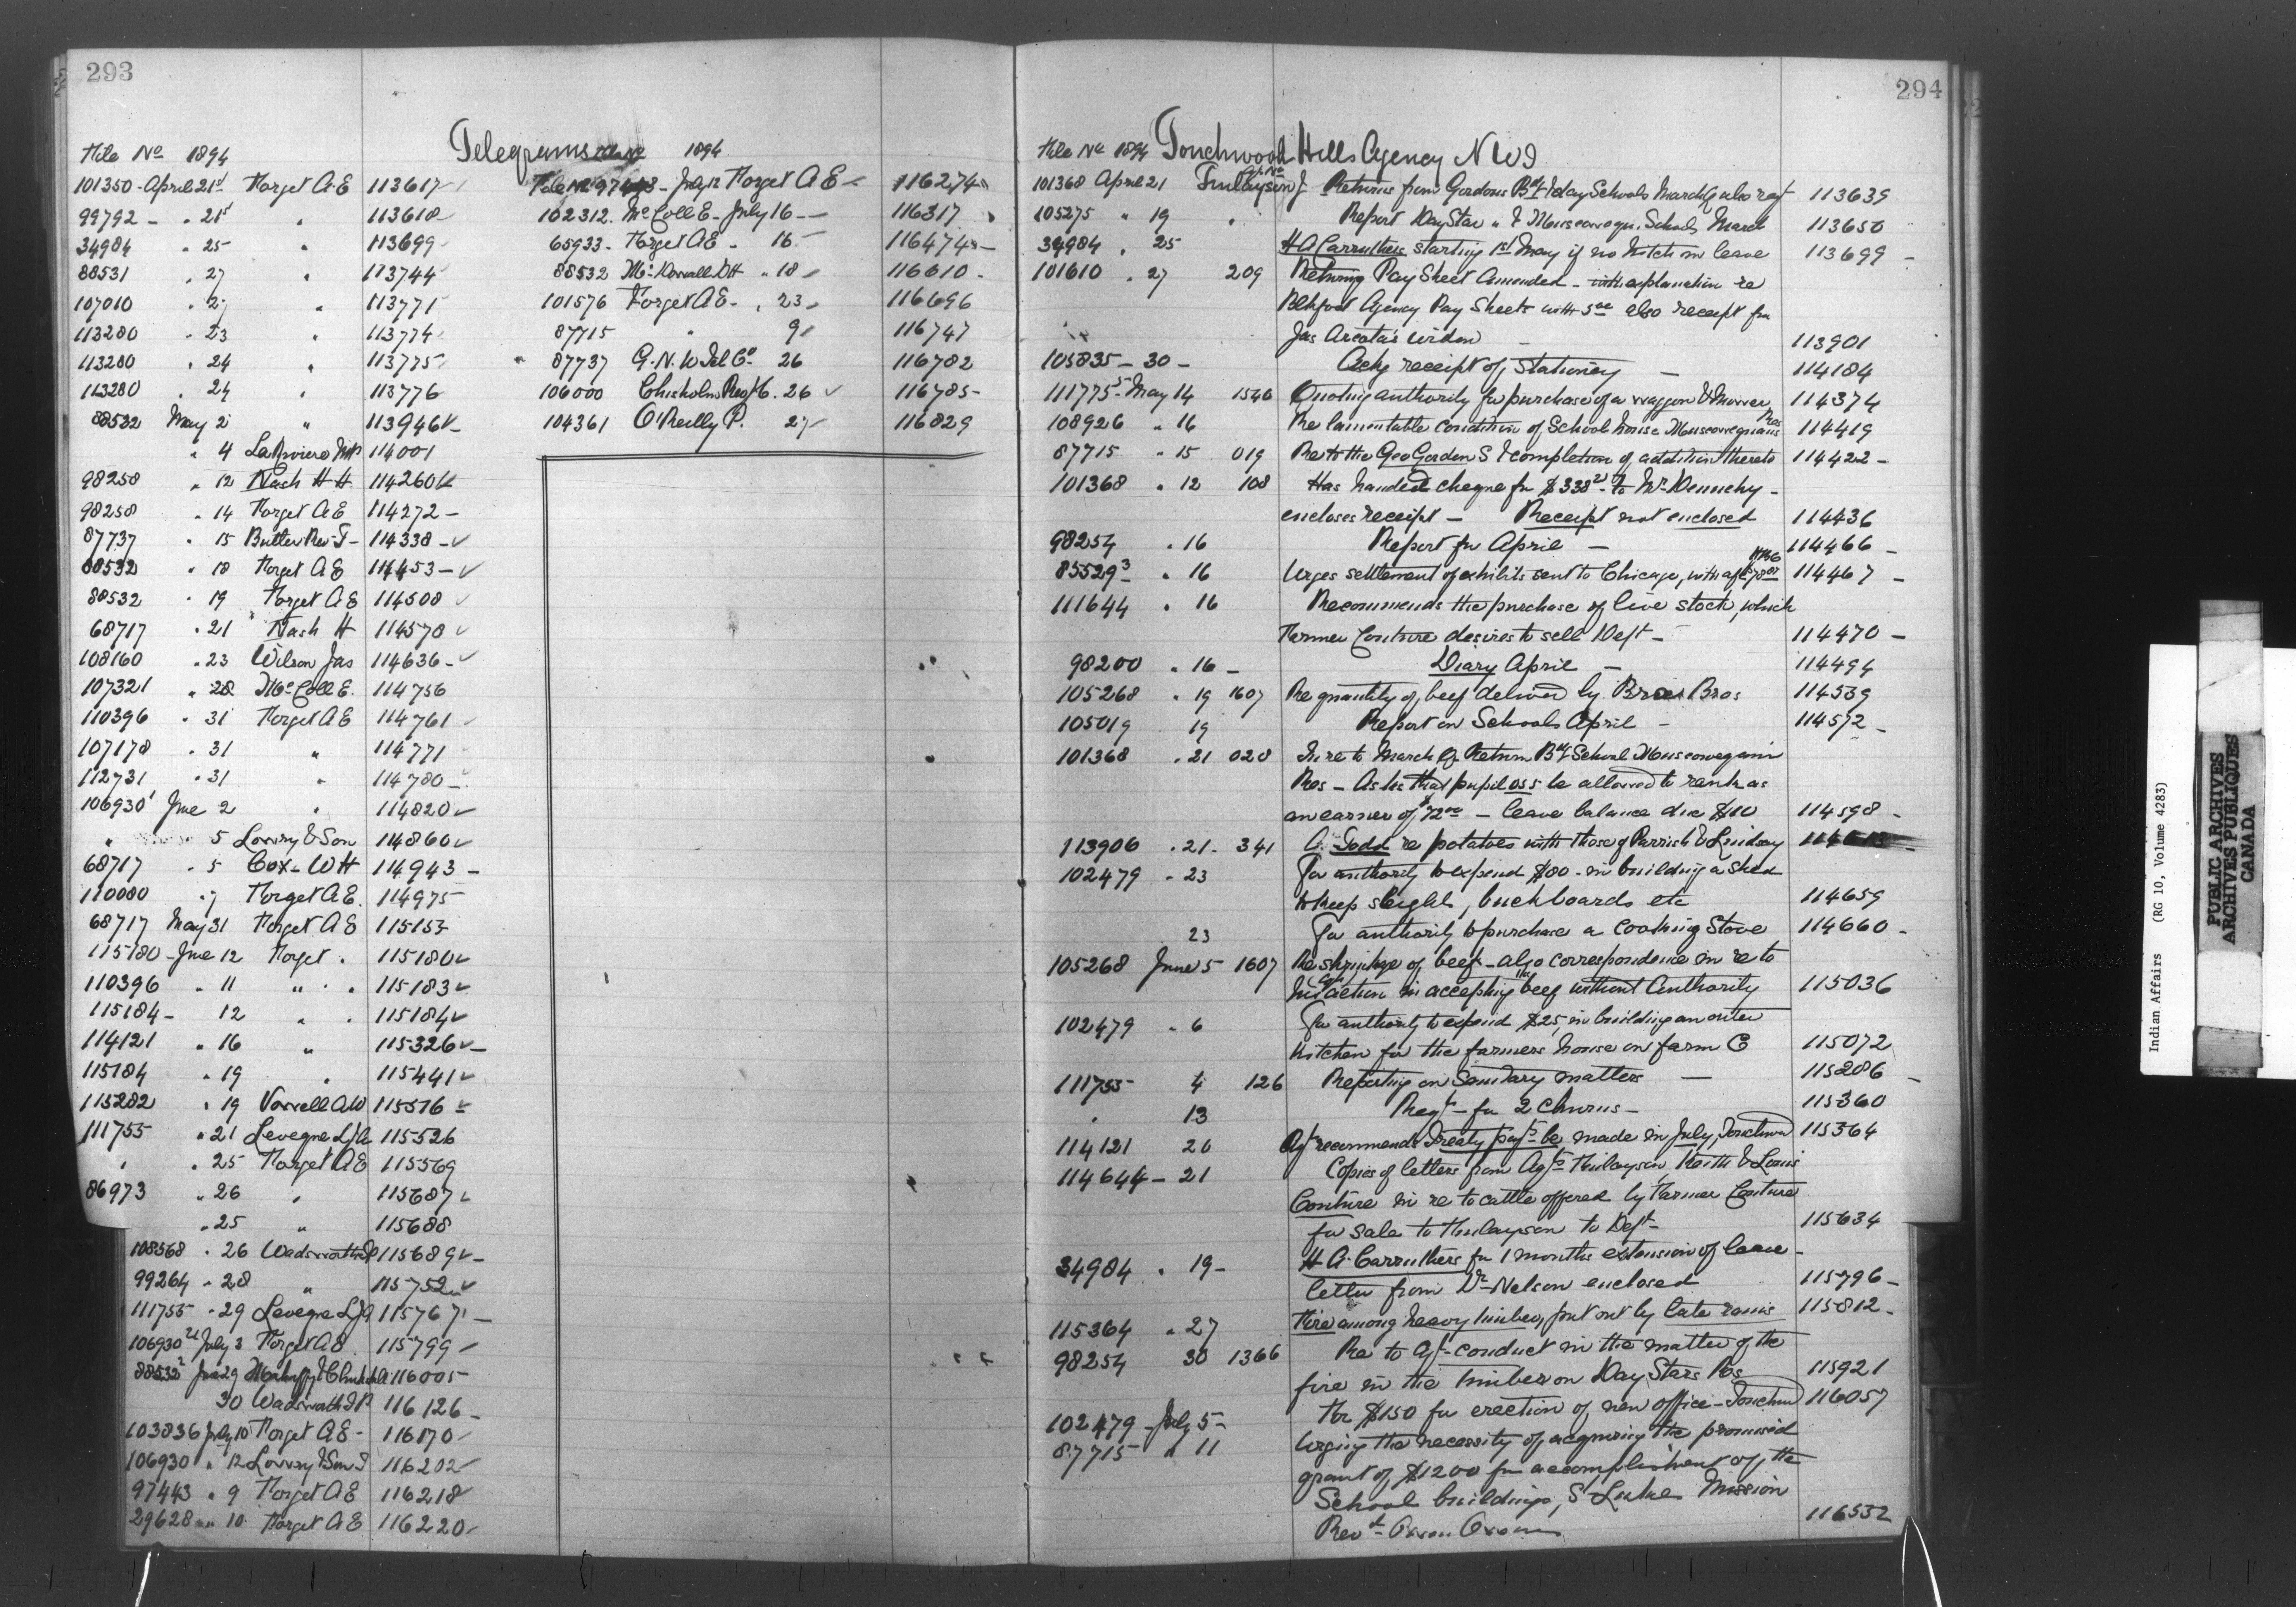 293
Telegrams 1894
File No 1894
101350 - April 21st Forget A E 113617
99792 - " 21st " 113618
34984 " 25 " 113699
88531 " 27 " 113744
107010 " 27 " 113771
113280 " 23 " 113774
113280 " 24 " 113775
113280 " 24 " 113776
88532 May 2 " 113946
" 4 LaRiviere 114001
98258 " 12 Nash H H 114260
98258 " 14 Forget A E 114272 -
87737 " 15 Butler Rev J - 114338 -
88532 " 18 Forget A E 114453 -
88532 " 19 Forget A E 114508
68717 " 21 Nash H 114578
108160 " 23 Wilson Jas 114636 -
107321 " 28 McColl E. 114756
110396 " 31 Forget A E 114761
107178 " 31 " 114771
112731 " 31 " 114780 -
106930 June 2 " 114820
" 5 Lowry & Son 114860
68717 " 5 Cox - W H 114943 -
110080 " 7 Forget A E. 114975
68717 May 31 Forget A E 115153
115180 - June 12 Forget " 115180
110396 " 11 " " " 115183
115184 - 12 " " 115184
114121 " 16 " 115326 -
115184 " 19 " 115441
115282 " 19 Vowell A W 115516
111755 " 21 Levegne L J A 115526
" " 25 Forget A E 115569
86973 " 26 " 115687
" 25 " 115688
108568 " 26 Wadsworth 115689 -
99264 " 28 " 115752
111755 " 29 Levegne L J A 115767 -
106930 July 3 Forget A E. 115799
88532 June 29 116005
30 Wadsworth 116126 -
103836 July 10 Forget A E - 116170
106930 " 12 Lowry & Son 116202
97443 " 9 Forget A E 116218
29628 " 10 Forget A E 116220
File No 97443 - July 12 Forget A E - 116274
102312. McColl E - July 16 - 116317
65933 - Forget A E - 16 116474 -
88532 " 18 116610 -
101576 Forget A E - " 23 116696
87715 " 9 116747
87737 G. N. W Tel Co. 26 116782
106000 Chisholm 26 116785 -
104361 O'Reilly P. 27 116829
294
File No 1894 Touchwood Hills Agency N W T
101368 April 21 Finlayson J - Returns from Gordons Bdg & day Schools March 113639
105275 " 19 " Report Day Star " & Muscowequ. Schools March 113650
34984 " 25 H A Carruthers starting 1st May if no hitch in leave 113699 -
101610 " 27 209 Returning Pay Sheet Amended - with explanation re
Btlford Agency Pay Sheets with also receipt for
Jas widow - 113901
105835 - 30 - Ackg receipt of Stationery - 114184
111775 - May 14 1540 Quoting authority for purchase of a waggon & Mower 114374
108926 " 16 Re lamentable condition of School house Muscowequans Res 114419
87715 " 15 019 Re to the Geo Gordon S & completion of addition thereto 114422 -
101368 " 12 108 Has handed cheque for $338 to Mr Dennehy -
encloses receipt - Receipt not enclosed 114436
98254 " 16 Report for April - 114466 -
85529 3 " 16 Urges settlement of exhibits sent to Chicago, 114467 -
111644 " 16 Recommends the purchase of live stock, which
Farmer Couture desires to sell Dept - 114470 -
98200 " 16 - Diary April - 114494
105268 " 19 1607 Re quantity of beef delivered by Bros 114539
105019 19 Report on Schools April - 114572 -
101368 " 21 028 In re to March Qr Return Bdg School Muscowequan
Res - Asks that pupil 055 be allowed to rank as
an earner of $72.00 - leave balance due $10 114598 -
113906 " 21 - 341 A. Todd re potatoes with those of Parrish & Lindsay
102479 " 23 For authority to expend $80 - in building a shed
to keep sleighs, buckboards etc 114659
23 For authority to purchase a Cooking Stove 114660 -
105268 June 5 1607 Re shrinkage of beef - also correspondence in re to
his action in accepting beef without Authority 115036
102479 " 6 For authority to expend $25, in building an outer
kitchen for the farmers house on farm C 115072
111755 4 126 Reporting on Sanitary matters - 115286 -
" 13 Reqt - for 2 Churns - 115360
114121 20 Agt recommends Treaty payts be made in July, Touchwd 115364
114644 - 21 Copies of letters from Agts Finlayson Keith & Louis
Couture in re to cattle offered by Farmer Couture
for sale to Finlayson to Dept - 115634
34984 " 19 - H A. Carruthers for 1 months extension of leave -
letter from Dr Nelson enclosed 115796 -
115364 " 27 Fire among heavy timber, put out by late rains 115812 -
98254 30 1366 Re to Agt - conduct in the matter of the
fire in the timber on Day Stars Res 115921
102479 - July 5 - For $150 for erection of new office - Touchwd 116057
87715 " 11 Urging the necessity of acquiring the promised
grant of $1200 for accomplishment of the
School buildings, S Lukes Mission
Revd - Owen Owens 116552
Indian Affairs (RG 10, Volume 4283)
PUBLIC ARCHIVES
ARCHIVES PUBLIQUES
CANADA